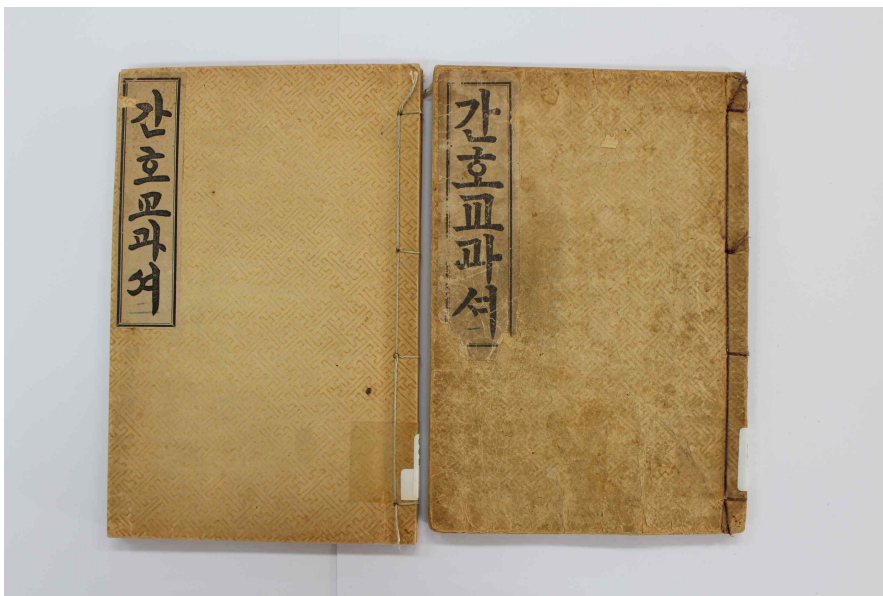 간호교과셔
간호교과셔